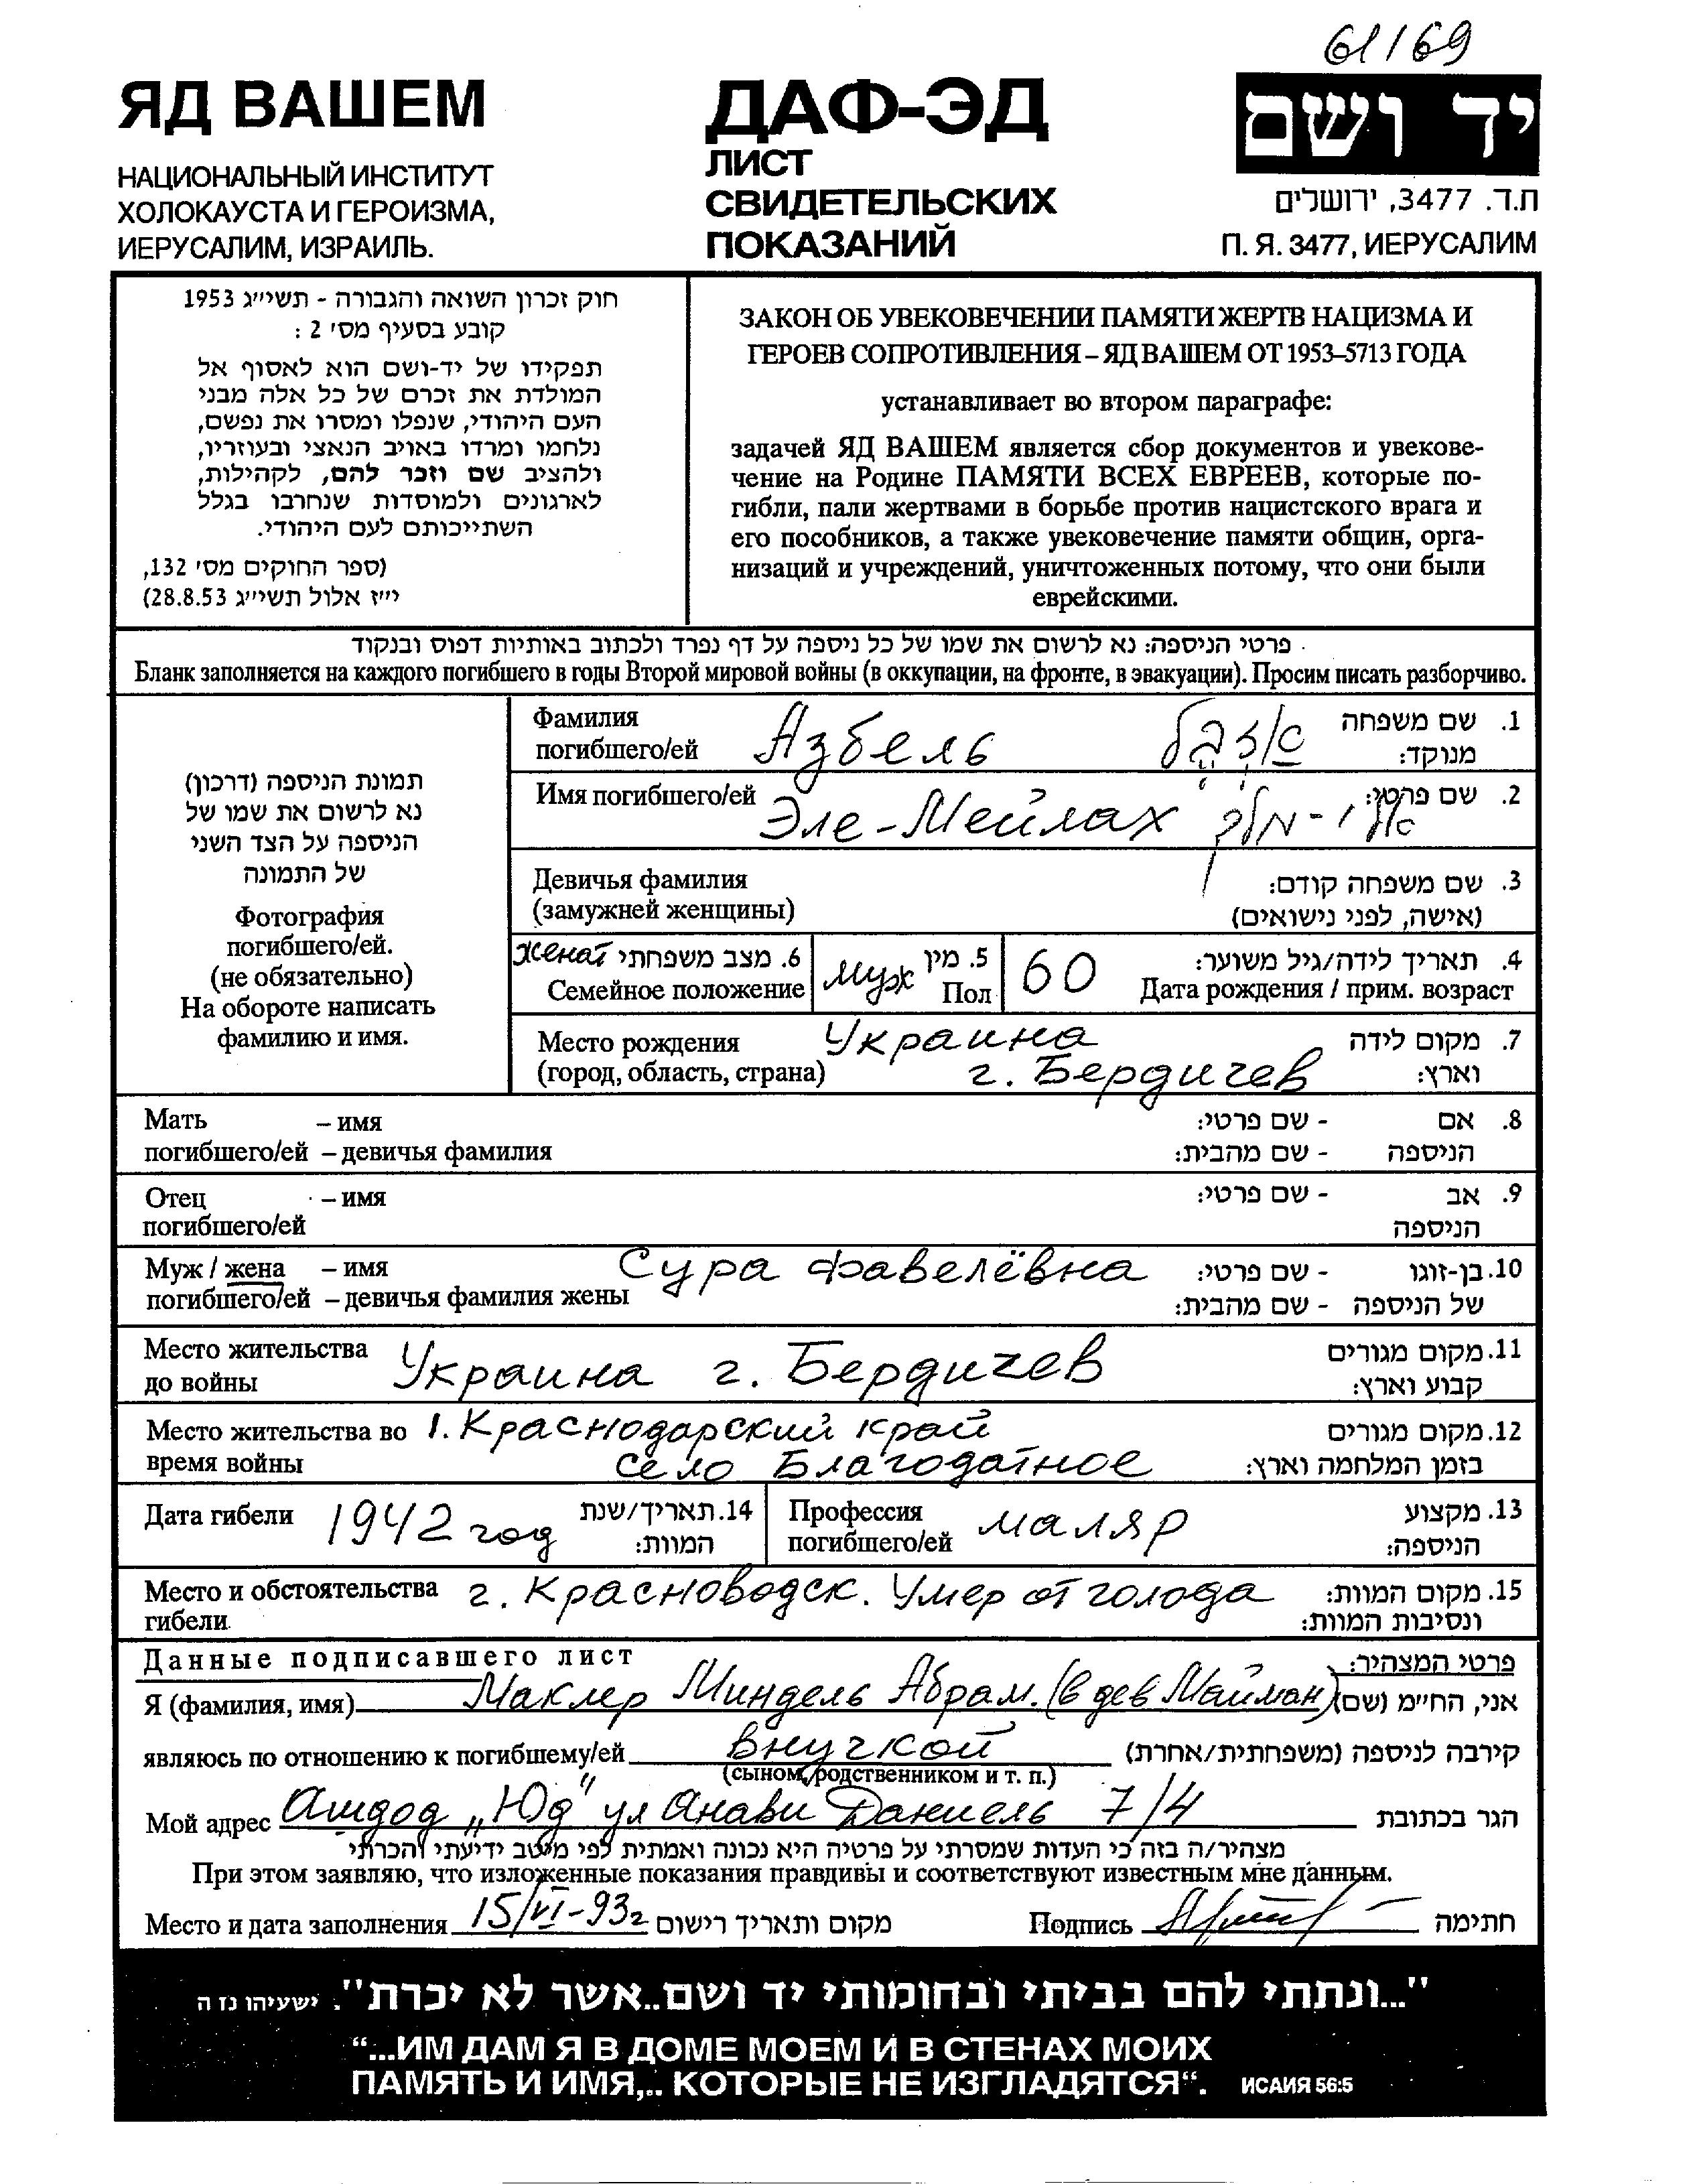 61/69
ЯД ВАШЕМ
НАЦИОНАЛЬНЫЙ ИНСТИТУТ
ХОЛОКАУСТА И ГЕРОИЗМА,
ИЕРУСАЛИМ, ИЗРАИЛЬ.
ДАФ-ЭД
ЛИСТ
СВИДЕТЕЛЬСКИХ
ПОКАЗАНИЙ
יד ושם
ת.ד. 3477, ירושלים
П. Я. 3477, ИЕРУСАЛИМ
חוק זכרון השואה והגבורה - תשי״ג 1953
קובע בסעיף מס׳ 2 :
תפקידו של יד-ושם הוא לאסוף אל
המולדת את זכרם של כל אלה מבני
העם היהודי, שנפלו ומסרו את נפשם,
נלחמו ומרדו באויב הנאצי ובעוזריו,
ולהציב שם וזכר להם, לקהילות,
לארגונים ולמוסדות שנחרבו בגלל
השתייכותם לעם היהודי.
(ספר החוקים מס׳ 132,
י״ז אלול תשי״ג 28.8.53)
ЗАКОН ОБ УВЕКОВЕЧЕНИИ ПАМЯТИ ЖЕРТВ НАЦИЗМА И
ГЕРОЕВ СОПРОТИВЛЕНИЯ – ЯД ВАШЕМ ОТ 1953–5713 ГОДА
устанавливает во втором параграфе:
задачей ЯД ВАШЕМ является сбор документов и увекове-
чение на Родине ПАМЯТИ ВСЕХ ЕВРЕЕВ, которые по-
гибли, пали жертвами в борьбе против нацистского врага и
его пособников, а также увековечение памяти общин, орга-
низаций и учреждений, уничтоженных потому, что они были
еврейскими.
פרטי הניספה: נא לרשום את שמו של כל ניספה על דף נפרד ולכתוב באותיות דפוס ובנקוד
Бланк заполняется на каждого погибшего в годы Второй мировой войны (в оккупации, на фронте, в эвакуации). Просим писать разборчиво.
תמונת הניספה (דרכון)
נא לרשום את שמו של
הניספה על הצד השני
של התמונה
Фотография
погибшего/ей.
(не обязательно)
На обороте написать
фамилию и имя.
Фамилия Азбель אזבל 1. שם משפחה
погибшего/ей מנוקד:
Имя погибшего/ей Эле-Мейлах אלי-מלך 2. שם פרטי:
Девичья фамилия 3. שם משפחה קודם:
(замужней женщины) (אישה, לפני נישואים)
женат 6. מצב משפחתי муж 5. מין 60 4. תאריך לידה/גיל משוער:
Семейное положение Пол Дата рождения / прим. возраст
Место рождения Украина 7. מקום לידה
(город, область, страна) г. Бердичев וארץ:
Мать – имя - שם פרטי: 8. אם
погибшего/ей – девичья фамилия - שם מהבית: הניספה
Отец – имя - שם פרטי: 9. אב
погибшего/ей הניספה
Муж / жена – имя Сура Фавелёвна - שם פרטי: 10. בן-זוגו
погибшего/ей – девичья фамилия жены - שם מהבית: של הניספה
Место жительства Украина г. Бердичев 11. מקום מגורים
до войны קבוע וארץ:
Место жительства во 1. Краснодарский край 12. מקום מגורים
время войны село Благодатное בזמן המלחמה וארץ:
Дата гибели 1942 год 14. תאריך/שנת Профессия маляр 13. מקצוע
המוות: погибшего/ей הניספה:
Место и обстоятельства г. Красноводск. Умер от голода 15. מקום המוות:
гибели ונסיבות המוות:
Данные подписавшего лист פרטי המצהיר:
Я (фамилия, имя) Маклер Миндель Абрам. (в дев Майман) אני, הח״מ (שם)
являюсь по отношению к погибшему/ей внучкой קירבה לניספה (משפחתית/אחרת)
(сыном, родственником и т. п.)
Мой адрес Ашдод „Юд" ул Анави Даниель 7/4 הגר בכתובת
מצהיר/ה בזה כי העדות שמסרתי על פרטיה היא נכונה ואמתית לפי מיטב ידיעתי והכרתי
При этом заявляю, что изложенные показания правдивы и соответствуют известным мне данным.
Место и дата заполнения 15/VI-93г מקום ותאריך רישום Подпись חתימה
"...ונתתי להם בביתי ובחומותי יד ושם..אשר לא יכרת". ישעיהו נז ה
“...ИМ ДАМ Я В ДОМЕ МОЕМ И В СТЕНАХ МОИХ
ПАМЯТЬ И ИМЯ,.. КОТОРЫЕ НЕ ИЗГЛАДЯТСЯ“. ИСАИЯ 56:5